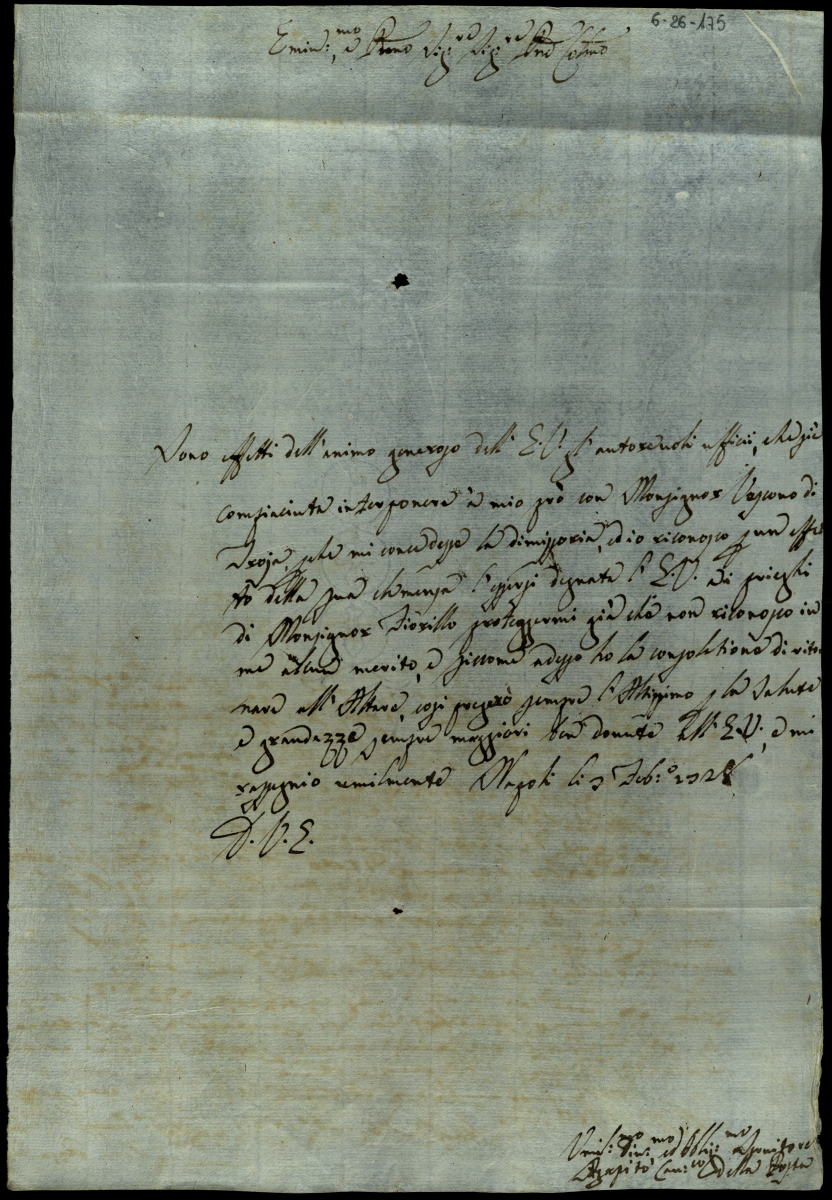 6-26-175
Emin:mo e Rmo Sig.re Sig.re Pne Colmo
Sono effetti dell'animo generoso dell'E.V. gl'autorevoli ufficii, che s'è
compiaciuta interponere à mio prò con Monsignor Vescovo di
Troja, che mi concedesse la dimissoria, ed io riconosco pure effet
to della sua clemenza l'essersi degnata l'E.V. ai prieghi
di Monsignor Fiorillo proteggermi già che non riconosco in
me alcun merito, e siccome adesso hò la consolatione di ritor
nare all'Altare, così pregarò sempre l'Altissimo p la salute
e grandezze sempre maggiori ben dovute all'E.V., e mi
rassegnio umilmente Napoli li 3 Feb:o
D. V. E.
Umil:mo Div:mo ed Obli:mo Servitore
Agapito Can:co della Posta